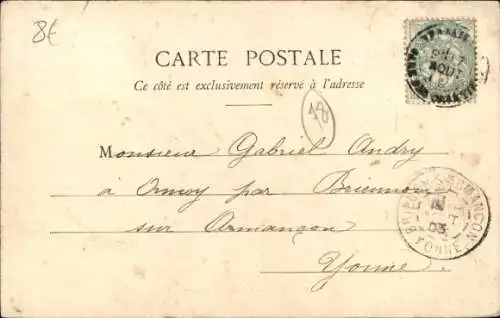 8€
CARTE POSTALE
Ce côté est exclusivement réservé à l'adresse
Monsieur Gabriel Andry
à Ormoy par Brienon
sur Armançon
Yonne
YONNE
03